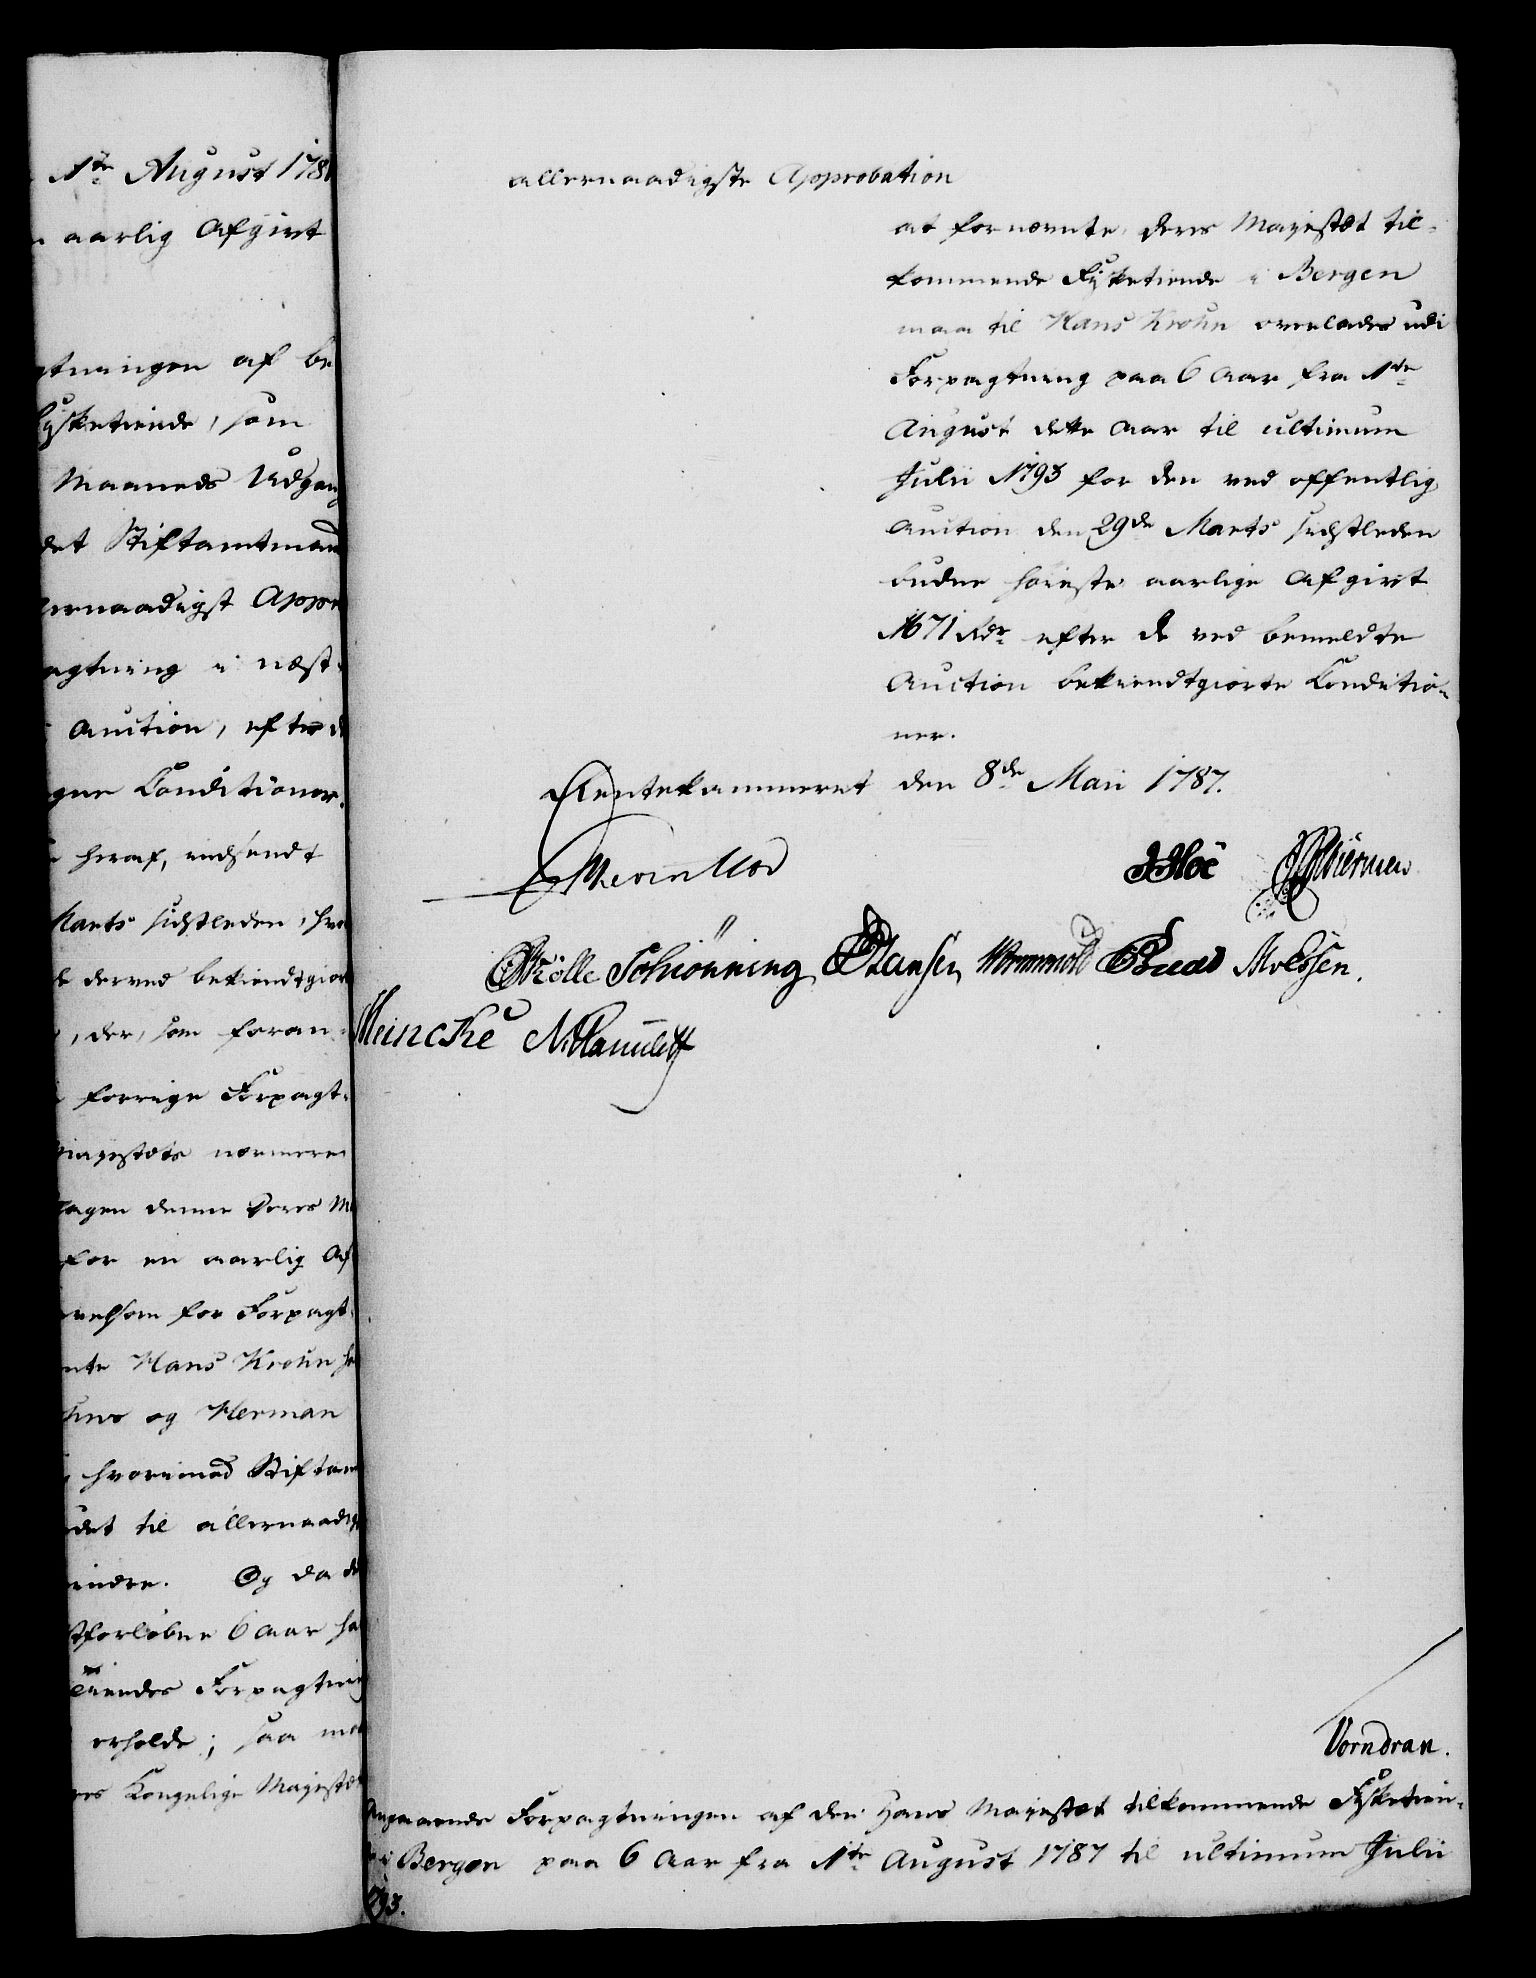 1te August 178
aarlig Afgivt
tningen af be
Fisketiende, som
Maaneds Udgang
det Stiftamtmand
ernaadigst Appr
agtning i næst-
Auction, efter d
gne Conditioner.
heraf, indsendt
Marts sidstleden, hvo
derved bekiendtgior
, der, som foran-
forrige Forpagt-
Majestets nærmere
tagen denne Deres M
for en aarlig Af
velsom for Forpagt-
nte Hans Krohn ha
og Herman
hvorimod Stiftam
det til allernaadig
indre. Og da d
forløbne 6 Aar ha
Tiendes Forpagtning
erholde; saa m
res Kongelige Majestæt
allernaadigste Approbation
at fornævnte, Deres Majestæt til-
kommende Fisketiende i Bergen
maa til Hans Krohn overlades udi
Forpagtning paa 6 Aar fra 1te
August dette Aar til ultimum
Julii 1793 for den ved offentlig
Auction den 29de Marts sidstleden
budne høieste aarlige Afgivt
1671 Rdr efter de ved bemeldte
Auction bekiendtgiorte Conditio-
ner.
Rentekammeret den 8de Maii 1787.
Schiønning Hansen Wormskiold
Meincke
Vorndran.
Angaaende Forpagtningen af den Hans Majestæt tilkommende Fisketien-
de i Bergen paa 6 Aar fra 1te August 1787 til ultimum Julii
1793.